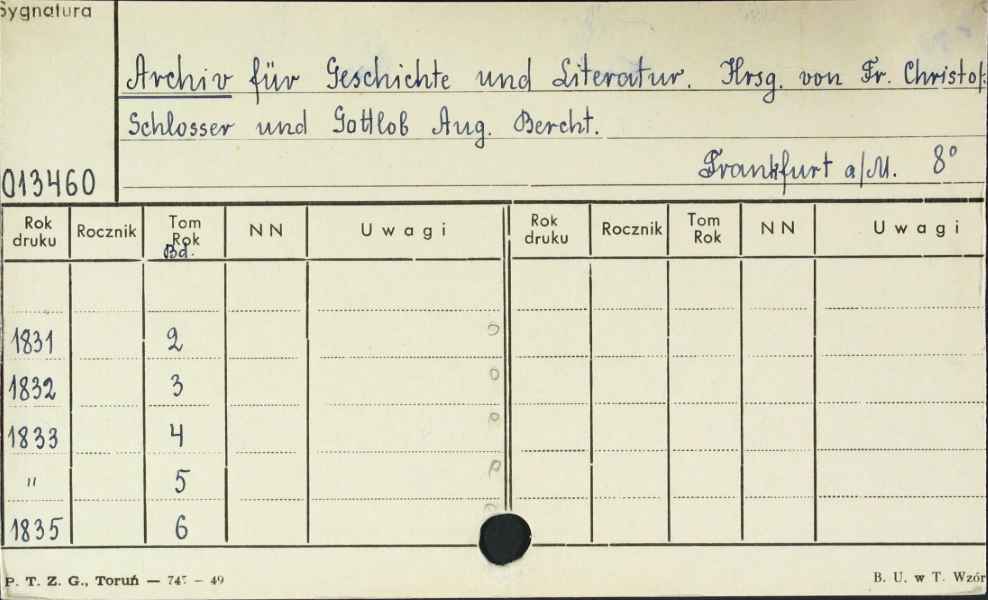 Sygnatura
Archiv für Geschichte und Literatur. Hrsg. von Fr. Christof.
Schlosser und Gottlob Aug. Bercht.
Frankfurt a/M. 8°
013460
Rok druku Rocznik Tom Rok Bd. NN Uwagi Rok druku Rocznik Tom Rok NN Uwagi
1831 2
1832 3
1833 4
" 5
1835 6
P. T. Z. G., Toruń — 747 - 49 B. U. w T. Wzór